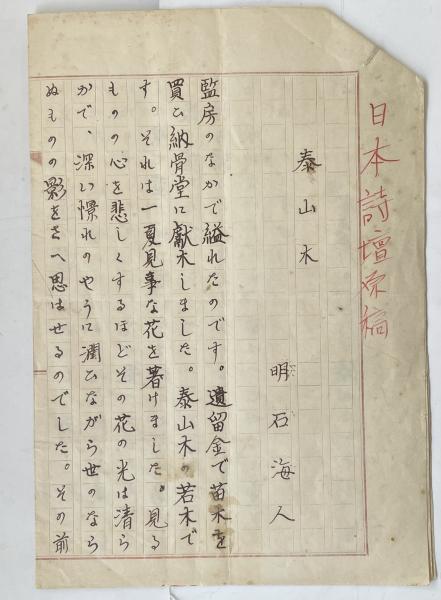 日本詩壇原稿
泰山木
明石海人
監房のなかで縊れたのです。遺留金で苗木を
買ひ納骨堂に獻木しました。泰山木の若木で
す。それは一夏見事な花を著けました。見る
ものの心を悲しくするほどその花の光は清ら
かで、深い憬れのやうに潤ひながら世のなら
ぬものの影をさへ思はせるのでした。その前